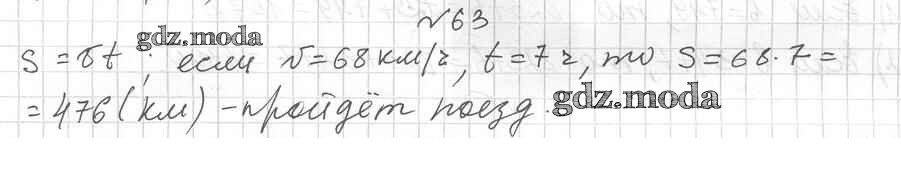 №63
S = vt; если v = 68 км/ч, t = 7 ч, то S = 68·7 =
= 476 (км) - пройдёт поезд.
gdz.moda
gdz.moda